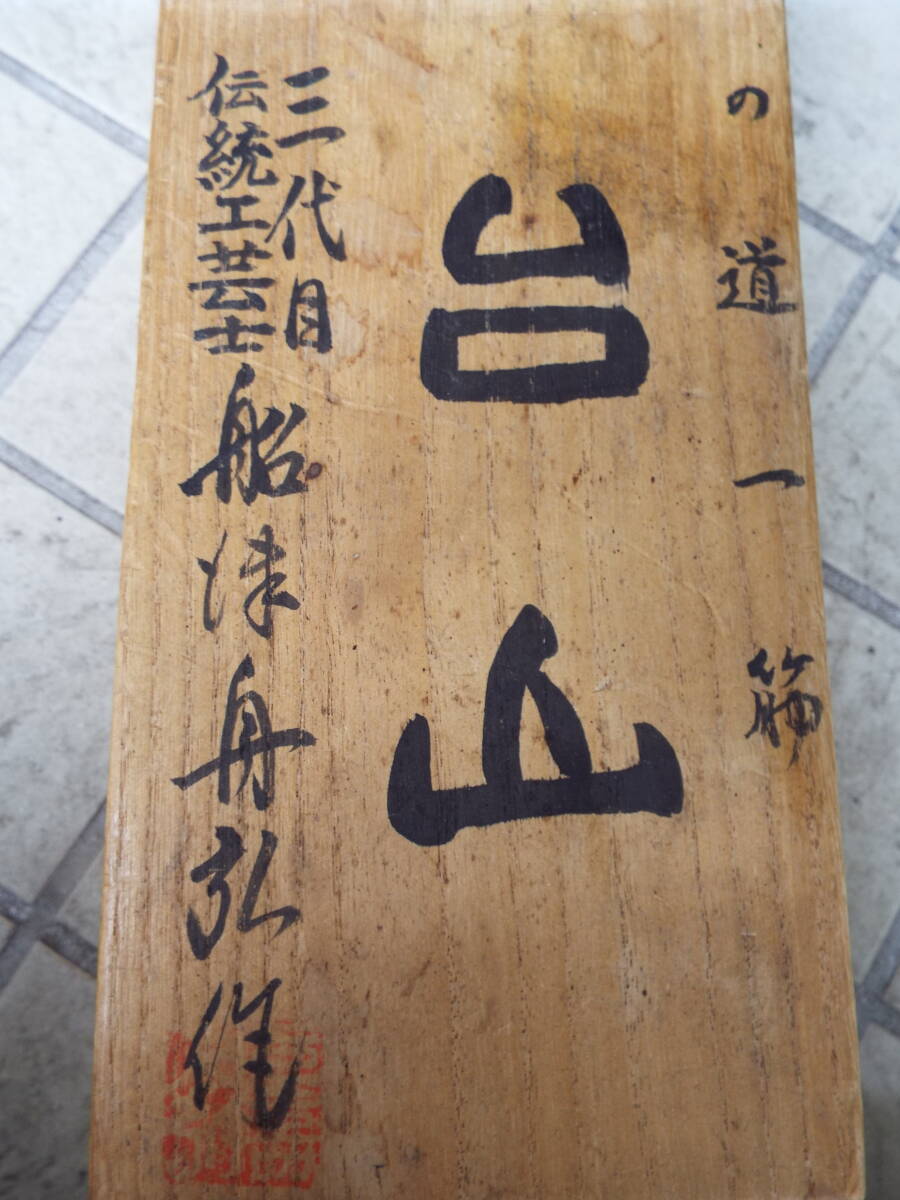 の道一筋
台山
三代目
伝統工芸士
船津舟弘作